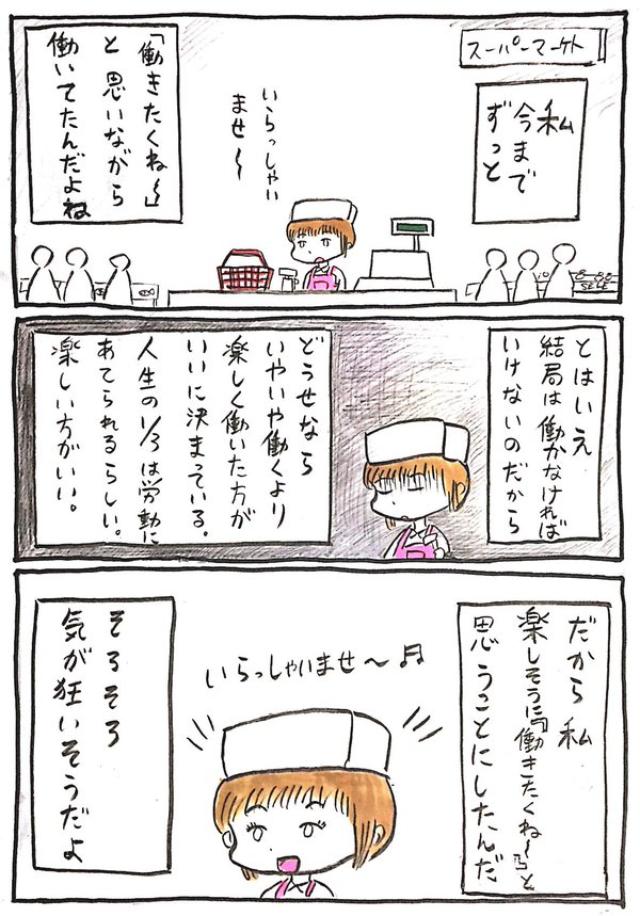 スーパーマーケット
私
今まで
ずっと
いらっしゃい
ませ〜
「働きたくね〜」
と思いながら
働いてたんだよね
SELE
とはいえ
結局は働かなければ
いけないのだから
どうせなら
いやいや働くより
楽しく働いた方が
いいに決まっている。
人生の1/3は労動に
あてられるらしい。
楽しい方がいい。
だから私
楽しそうに「働きたくね〜♫」と
思うことにしたんだ
いらっしゃいませ〜♬
そろそろ
気が狂いそうだよ